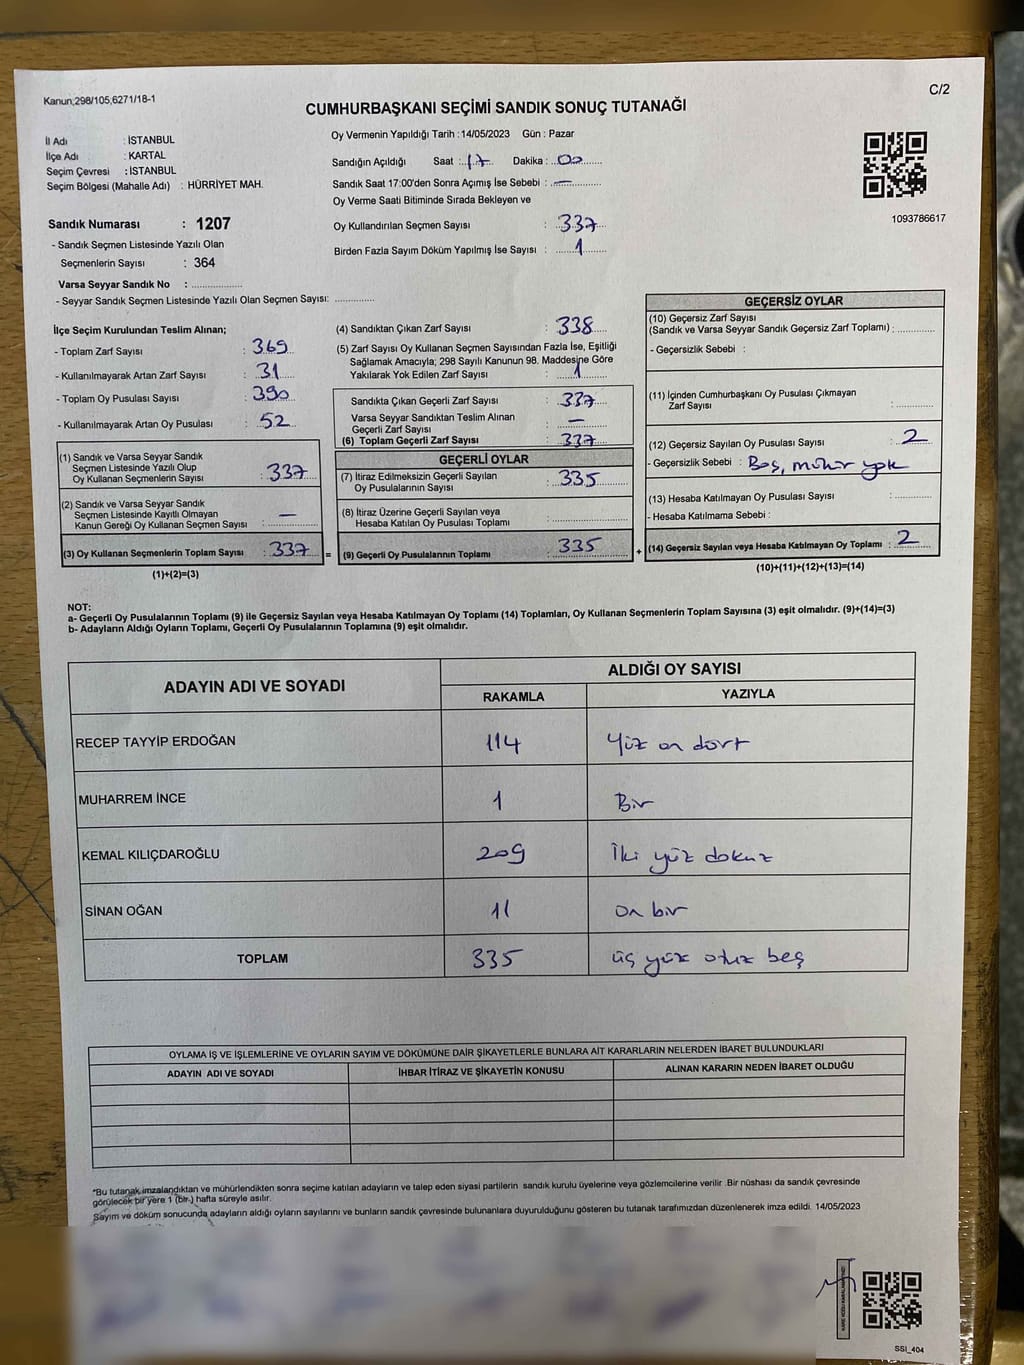 Kanun;298/105,6271/18-1
C/2
CUMHURBAŞKANI SEÇİMİ SANDIK SONUÇ TUTANAĞI
İl Adı : İSTANBUL
İlçe Adı : KARTAL
Seçim Çevresi : İSTANBUL
Seçim Bölgesi (Mahalle Adı) : HÜRRİYET MAH.
Oy Vermenin Yapıldığı Tarih : 14/05/2023 Gün : Pazar
Sandığın Açıldığı Saat : 17 Dakika : 00
Sandık Saat 17:00'den Sonra Açımış İse Sebebi : —
Oy Verme Saati Bitiminde Sırada Bekleyen ve
Oy Kullandırılan Seçmen Sayısı : 337
Birden Fazla Sayım Döküm Yapılmış İse Sayısı : 1
1093786617
Sandık Numarası : 1207
- Sandık Seçmen Listesinde Yazılı Olan
Seçmenlerin Sayısı : 364
Varsa Seyyar Sandık No :
- Seyyar Sandık Seçmen Listesinde Yazılı Olan Seçmen Sayısı:
İlçe Seçim Kurulundan Teslim Alınan;
- Toplam Zarf Sayısı : 369
- Kullanılmayarak Artan Zarf Sayısı : 31
- Toplam Oy Pusulası Sayısı : 390
- Kullanılmayarak Artan Oy Pusulası : 52
(1) Sandık ve Varsa Seyyar Sandık
Seçmen Listesinde Yazılı Olup
Oy Kullanan Seçmenlerin Sayısı : 337
(2) Sandık ve Varsa Seyyar Sandık
Seçmen Listesinde Kayıtlı Olmayan
Kanun Gereği Oy Kullanan Seçmen Sayısı : —
(3) Oy Kullanan Seçmenlerin Toplam Sayısı : 337 =
(1)+(2)=(3)
(4) Sandıktan Çıkan Zarf Sayısı : 338
(5) Zarf Sayısı Oy Kullanan Seçmen Sayısından Fazla İse, Eşitliği
Sağlamak Amacıyla; 298 Sayılı Kanunun 98. Maddesine Göre
Yakılarak Yok Edilen Zarf Sayısı : 1
Sandıkta Çıkan Geçerli Zarf Sayısı : 337
Varsa Seyyar Sandıktan Teslim Alınan
Geçerli Zarf Sayısı : —
(6) Toplam Geçerli Zarf Sayısı : 337
GEÇERLİ OYLAR
(7) İtiraz Edilmeksizin Geçerli Sayılan
Oy Pusulalarının Sayısı : 335
(8) İtiraz Üzerine Geçerli Sayılan veya
Hesaba Katılan Oy Pusulası Toplamı :
(9) Geçerli Oy Pusulalarının Toplamı : 335 +
GEÇERSİZ OYLAR
(10) Geçersiz Zarf Sayısı
(Sandık ve Varsa Seyyar Sandık Geçersiz Zarf Toplamı) :
- Geçersizlik Sebebi :
(11) İçinden Cumhurbaşkanı Oy Pusulası Çıkmayan
Zarf Sayısı :
(12) Geçersiz Sayılan Oy Pusulası Sayısı : 2
- Geçersizlik Sebebi : Boş, mühür yok
(13) Hesaba Katılmayan Oy Pusulası Sayısı :
- Hesaba Katılmama Sebebi :
(14) Geçersiz Sayılan veya Hesaba Katılmayan Oy Toplamı : 2
(10)+(11)+(12)+(13)=(14)
NOT:
a- Geçerli Oy Pusulalarının Toplamı (9) ile Geçersiz Sayılan veya Hesaba Katılmayan Oy Toplamı (14) Toplamları, Oy Kullanan Seçmenlerin Toplam Sayısına (3) eşit olmalıdır. (9)+(14)=(3)
b- Adayların Aldığı Oyların Toplamı, Geçerli Oy Pusulalarının Toplamına (9) eşit olmalıdır.
ADAYIN ADI VE SOYADI
ALDIĞI OY SAYISI
RAKAMLA YAZIYLA
RECEP TAYYİP ERDOĞAN 114 Yüz on dört
MUHARREM İNCE 1 Bir
KEMAL KILIÇDAROĞLU 209 İki yüz dokuz
SİNAN OĞAN 11 On bir
TOPLAM 335 üç yüz otuz beş
OYLAMA İŞ VE İŞLEMLERİNE VE OYLARIN SAYIM VE DÖKÜMÜNE DAİR ŞİKAYETLERLE BUNLARA AİT KARARLARIN NELERDEN İBARET BULUNDUKLARI
ADAYIN ADI VE SOYADI İHBAR İTİRAZ VE ŞİKAYETİN KONUSU ALINAN KARARIN NEDEN İBARET OLDUĞU
*Bu tutanak imzalandıktan ve mühürlendikten sonra seçime katılan adayların ve talep eden siyasi partilerin sandık kurulu üyelerine veya gözlemcilerine verilir .Bir nüshası da sandık çevresinde
görülecek bir yere 1 (bir.) hafta süreyle asılır.
Sayım ve döküm sonucunda adayların aldığı oyların sayılarını ve bunların sandık çevresinde bulunanlara duyurulduğunu gösteren bu tutanak tarafımızdan düzenlenerek imza edildi. 14/05/2023
SSI_404